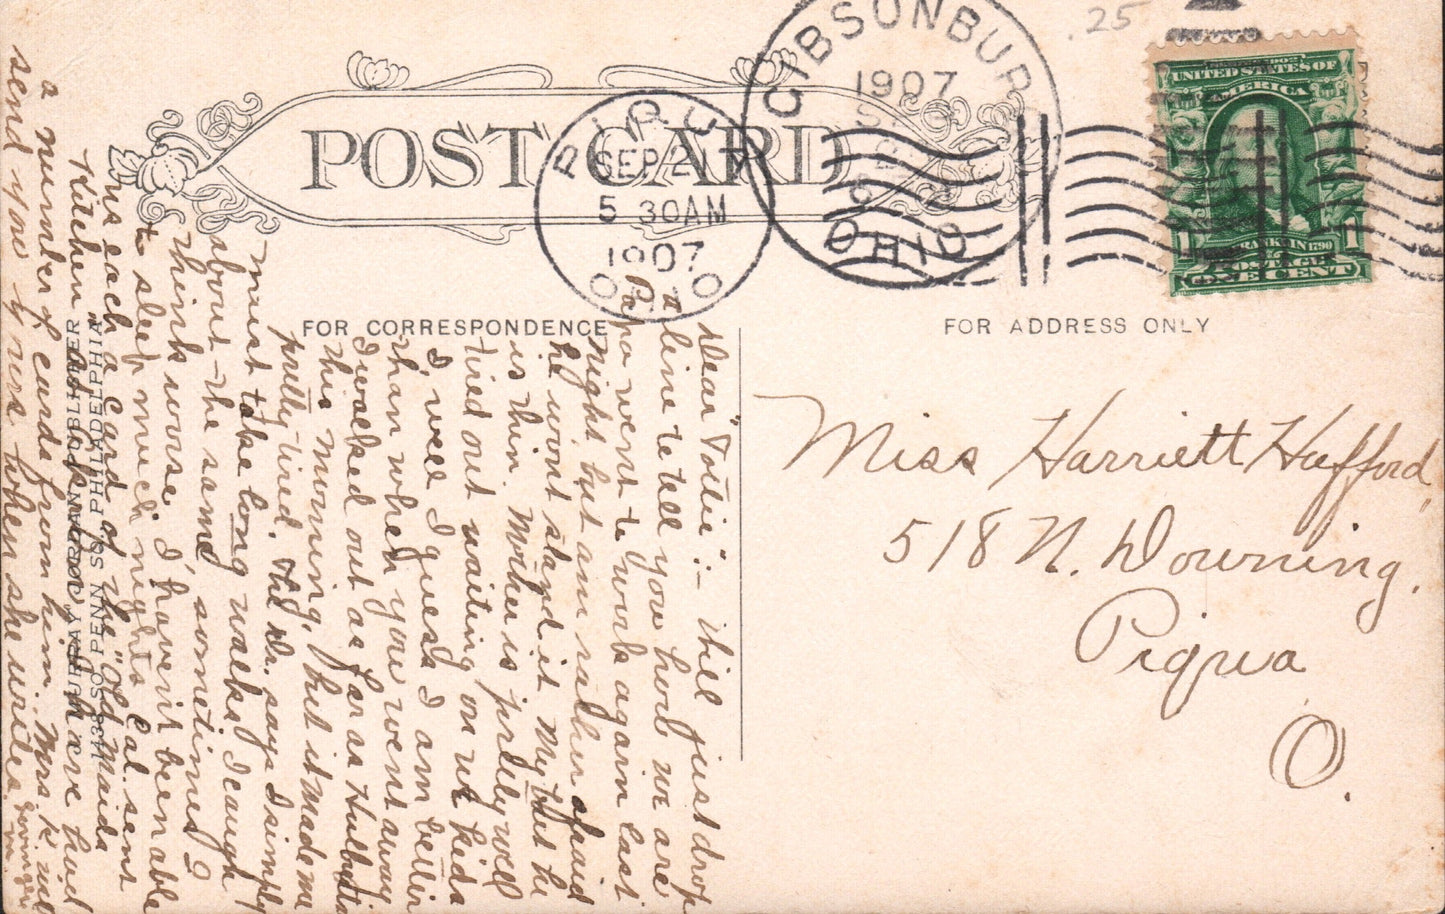 .25
POST CARD
GIBSONBUR
1907
OHIO
PIQU
SEP 21
5 30AM
1907
OHIO
UNITED STATES OF
AMERICA
FRANKLIN 1790
1 1
ONE CENT
FOR CORRESPONDENCE
FOR ADDRESS ONLY
Miss Harriett Hufford,
518 N. Downing.
Piqua
O.
Dear "Totie":- Will just drop
a line to tell you how we are
Papa went to work again last
night but am rather afraid
he wont stand it. My but he
is thin. Mother is pretty well
tired out waiting on us kids
I well I guess I am better
than when you went away
I walked out as far as Hulbutts
this morning, but it made me
pretty tired. The Dr. says I simply
must take long walks, I caugh
about the same, sometimes I
think worse. I haven't been able
to sleep much nights. Cal. sent
us each a card of the "Old Maids
Kitchen" and Papa & I have had
a number of cards from him. Mrs. K. will
send you yours when she writes
MURRAY JORDAN PUBLISHER
1438 SO. PENN SQ. PHILADELPHIA